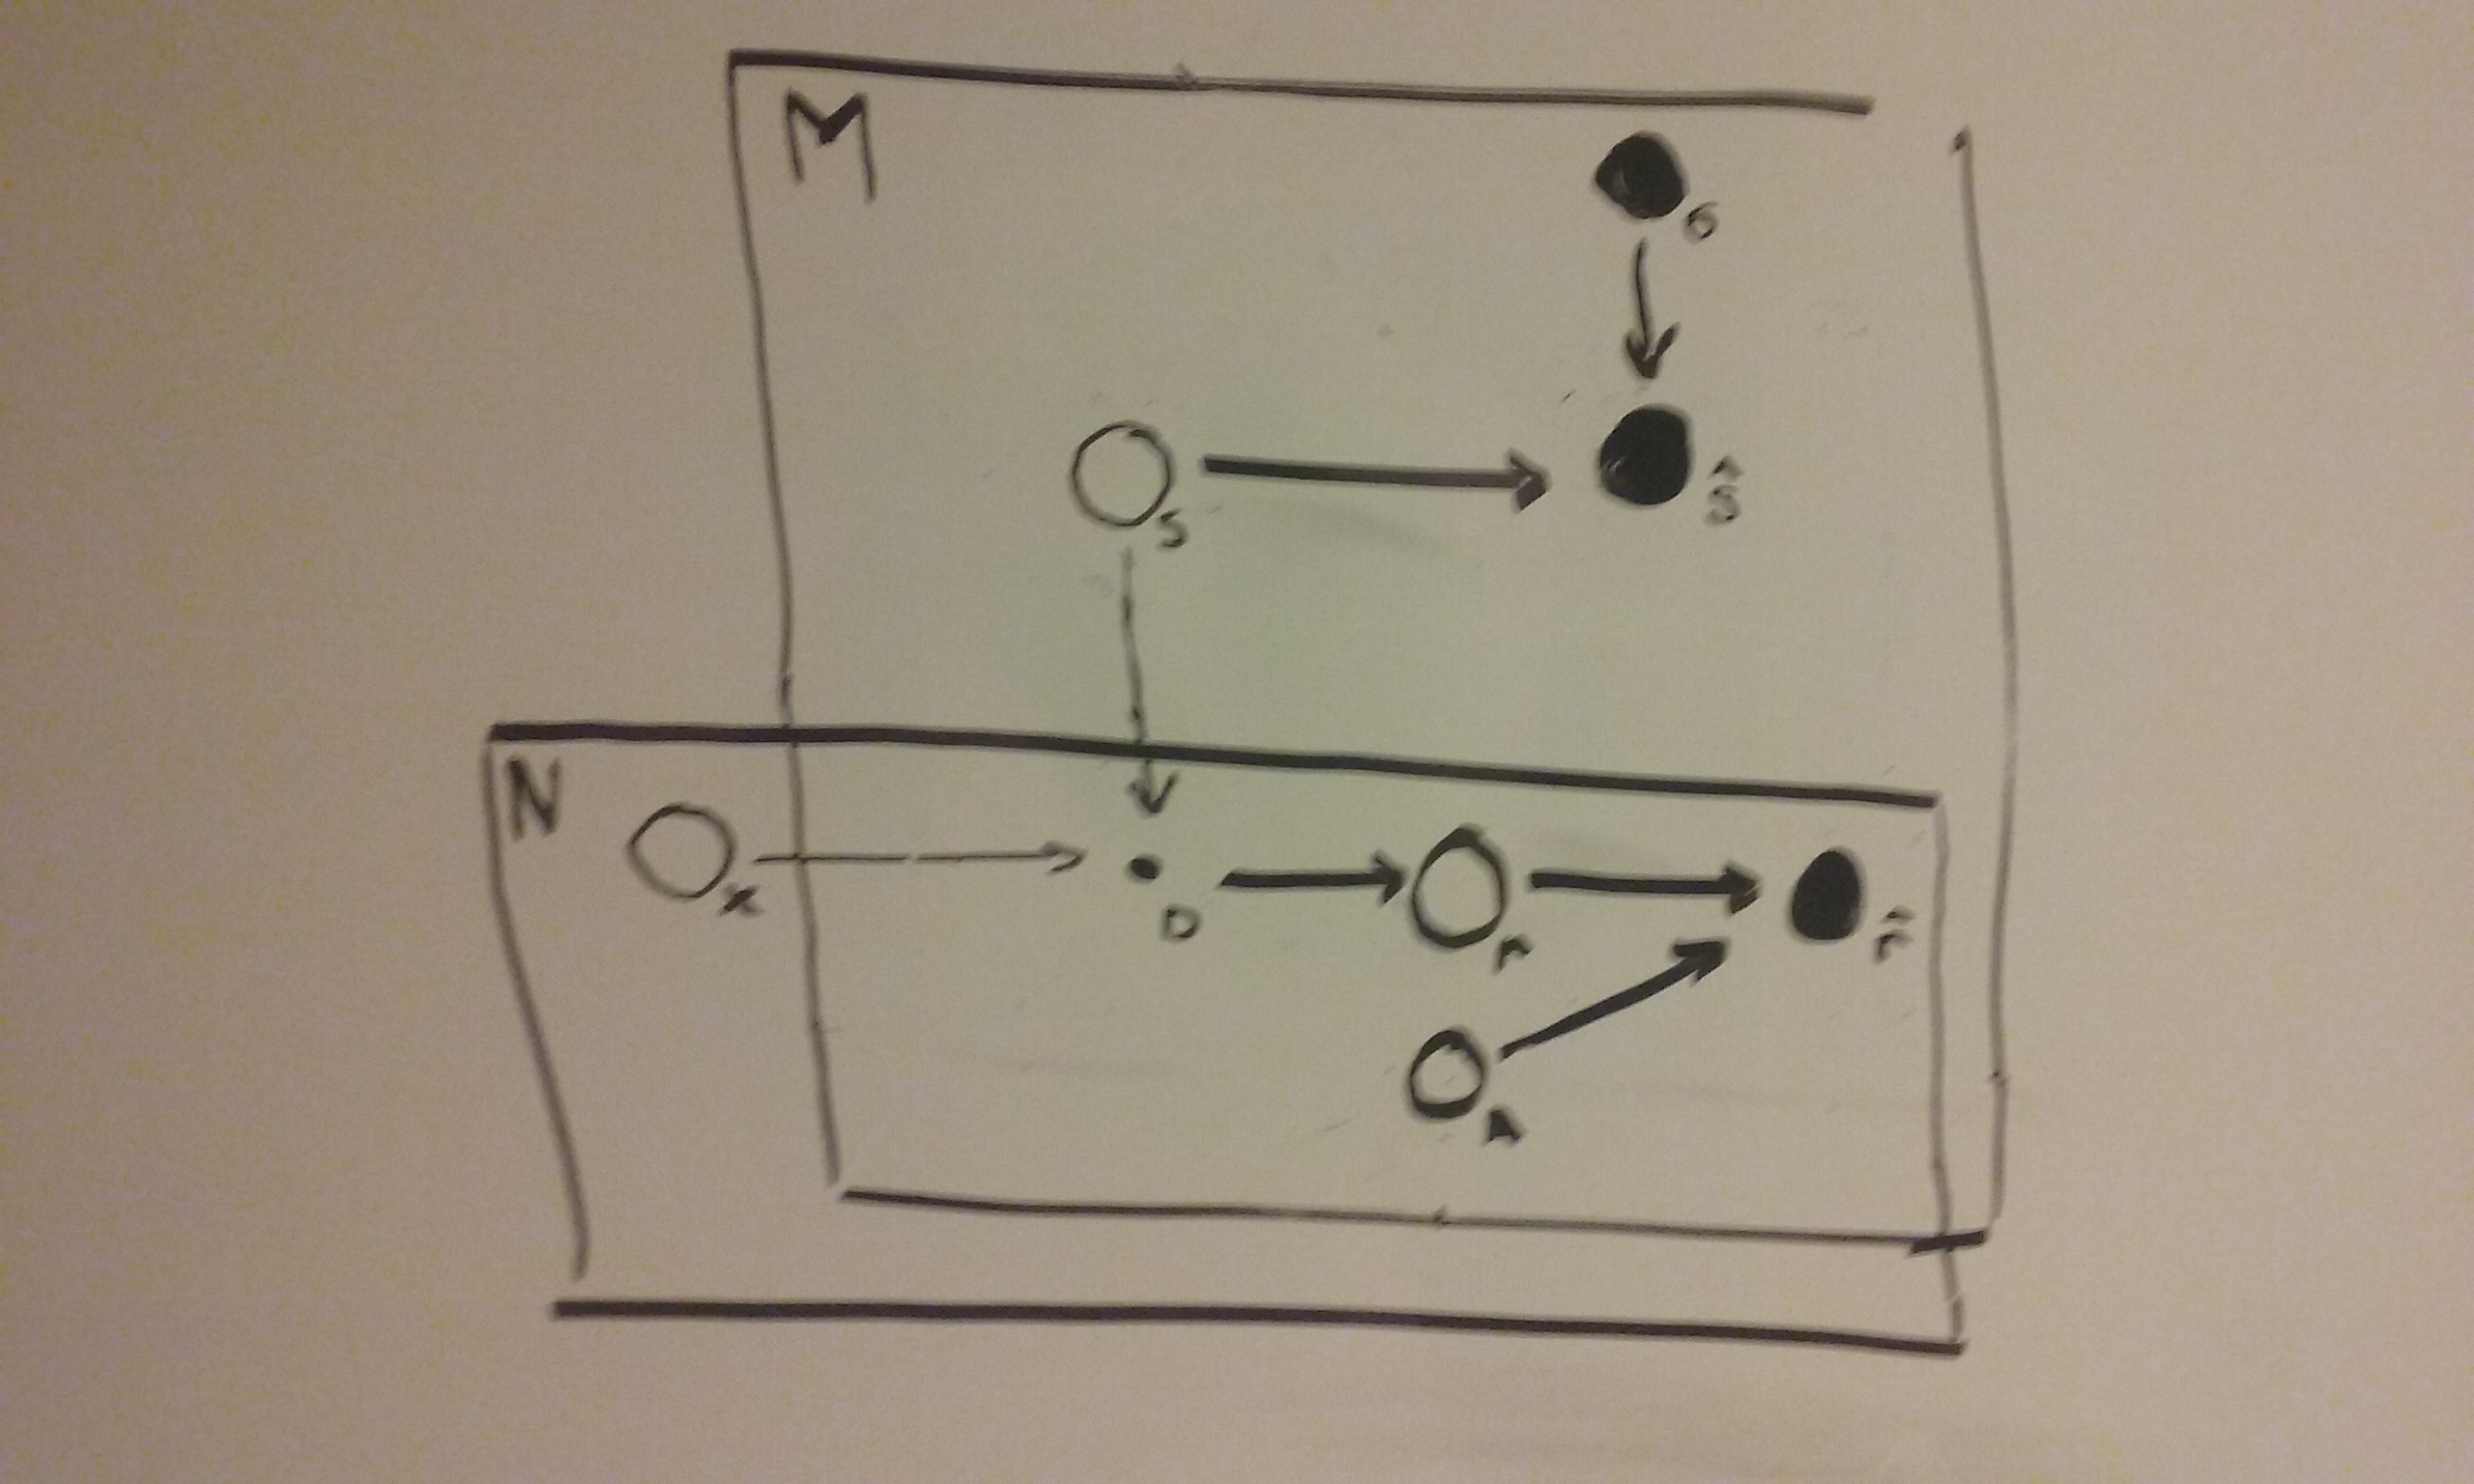 M
σ
S
ŝ
N
x
D
r
r̂
A